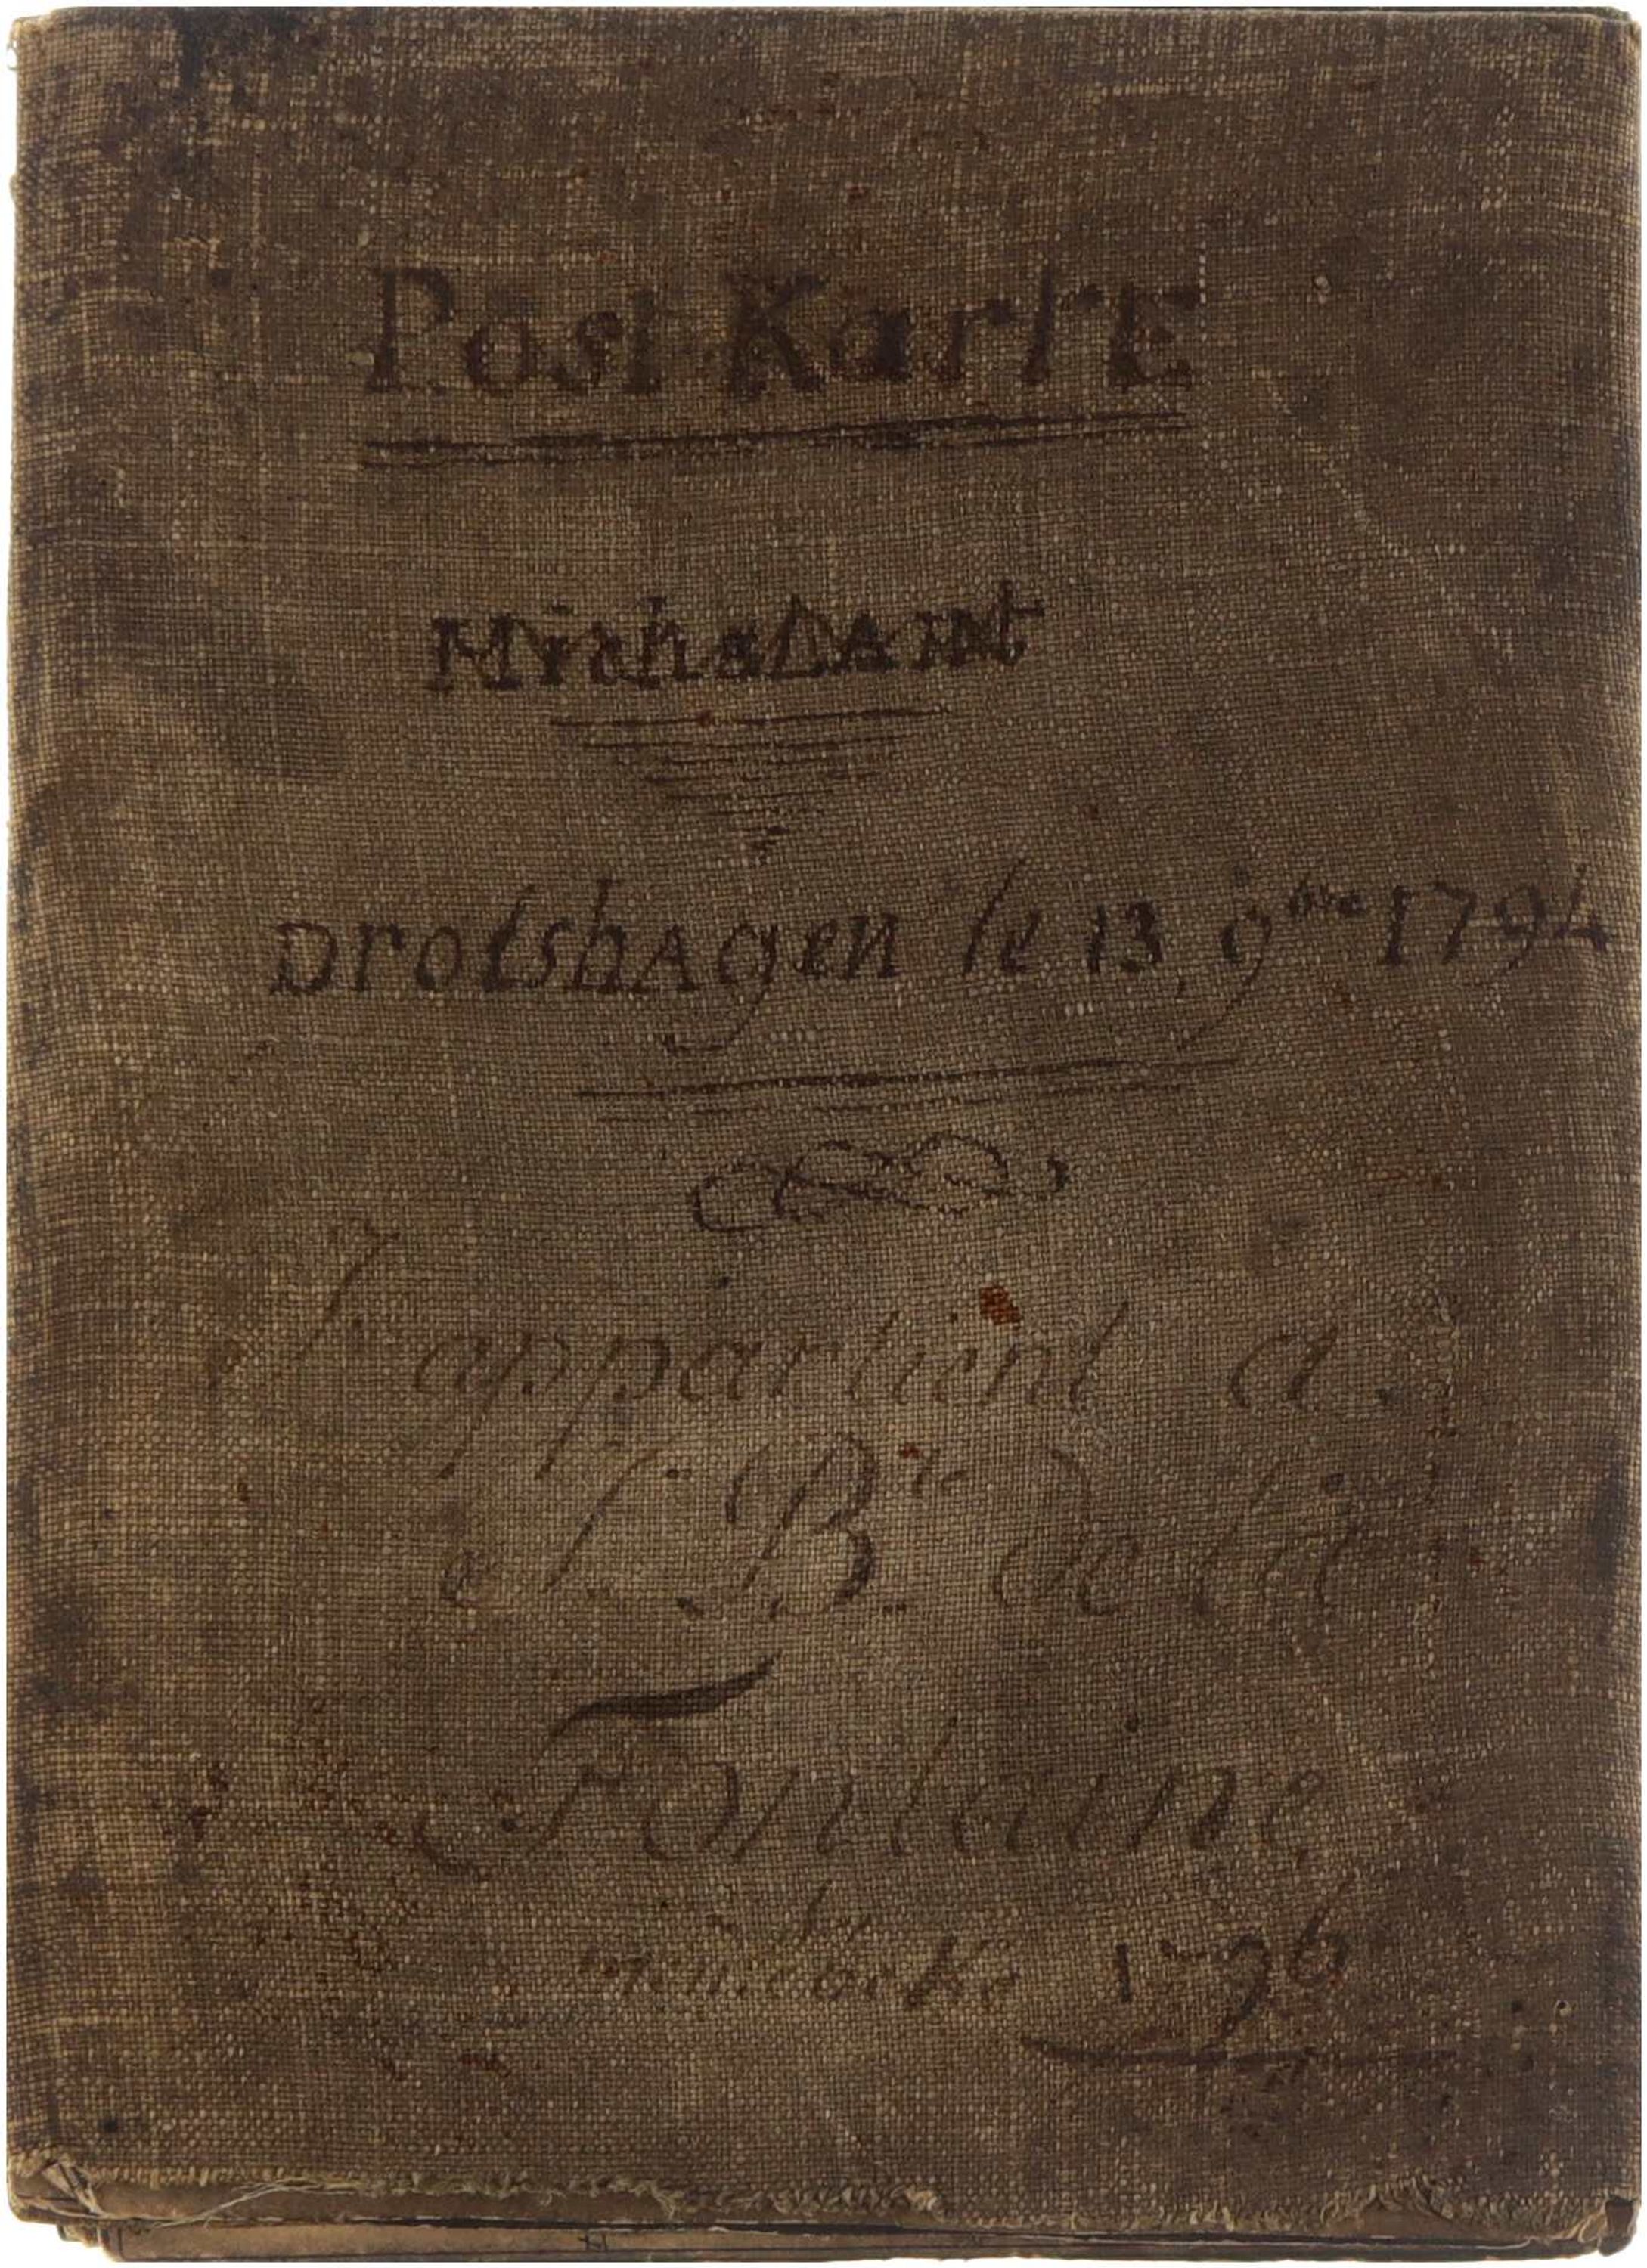 Post KartE
DrolshAgen le 13 9bre 1794
appartient a
Bn de la
Fontaine
1796